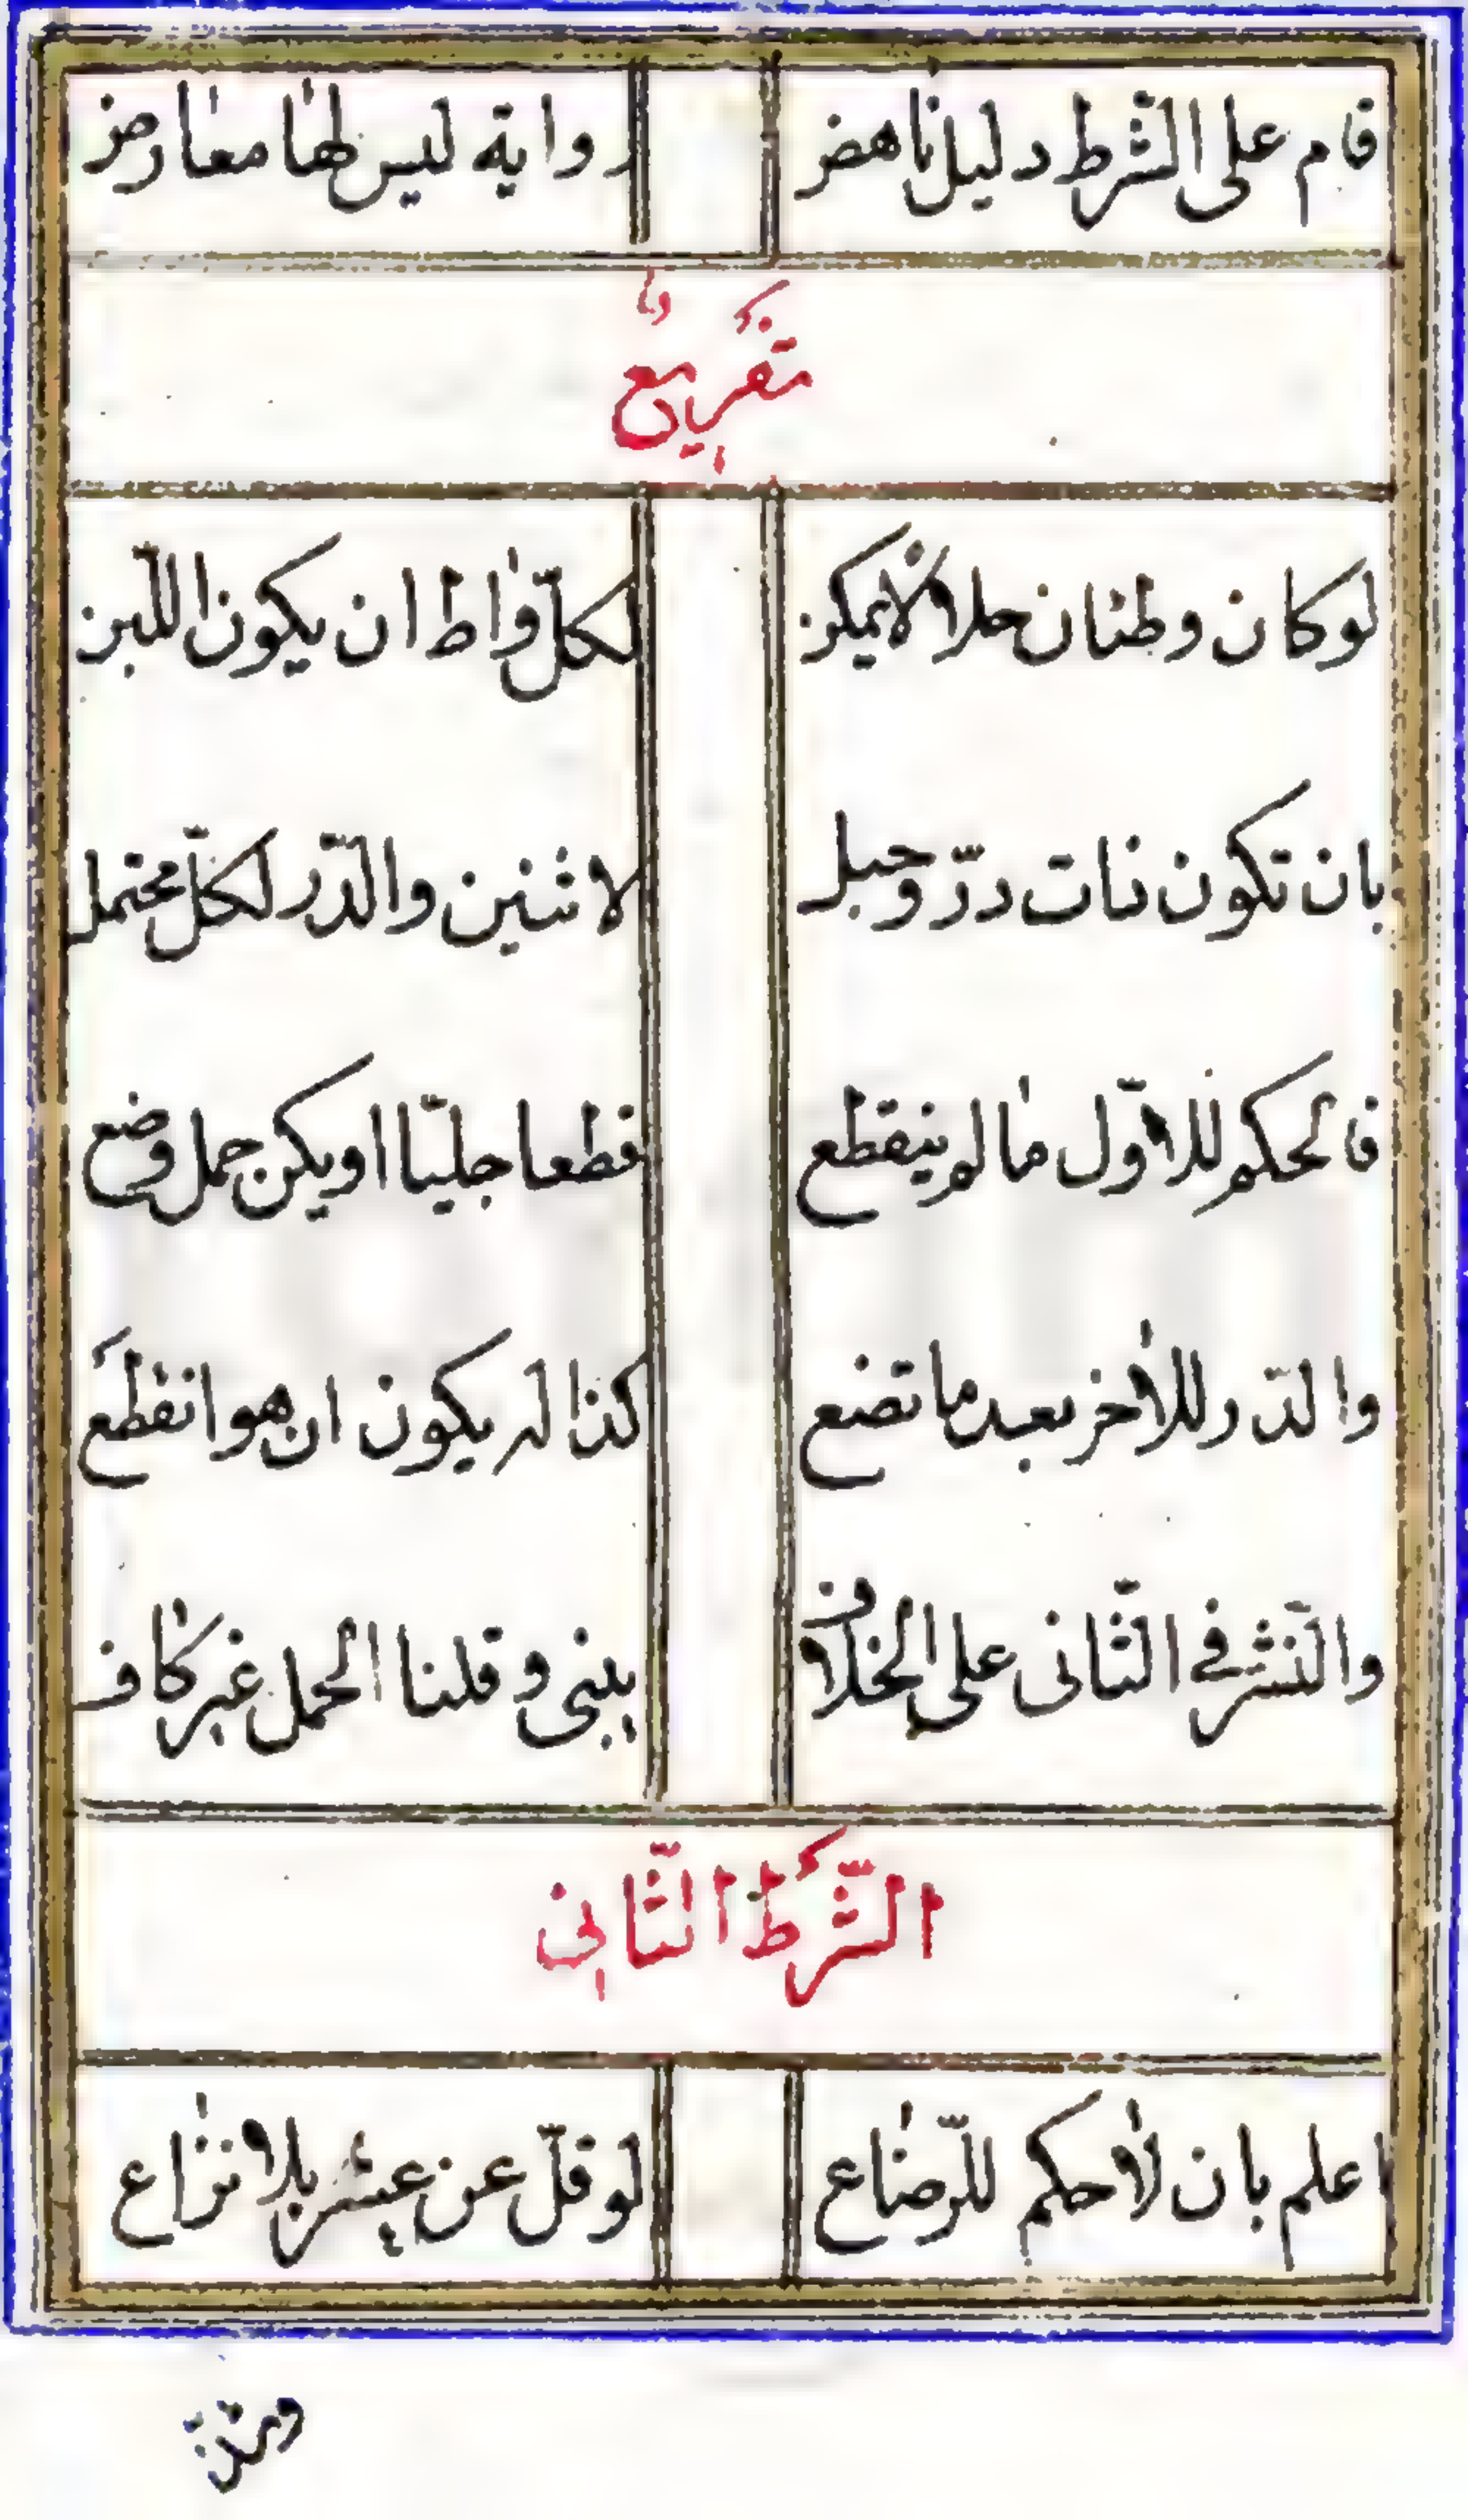 قام على الشّرط دليل ناهض رواية ليس لها معارض
تفريع
لو كان وطئان حلالا يمكن لكلّ واط ان يكون اللّبن
بان تكون ذات درّ وحبل لاثنين والدّر لكلّ محتمل
فالحكم للاوّل ما لم ينقطع قطعا جليّا او يكن حمل وضع
والدّر للاخر بعد ما تضع كذا له يكون ان هو انقطع
والنّشر فى الثّانى على الخلاف يبنى وقلنا الحمل غير كاف
الشّرط الثّانى
اعلم بان لا حكم للرّضاع لو قلّ عن عشر بلا نزاع